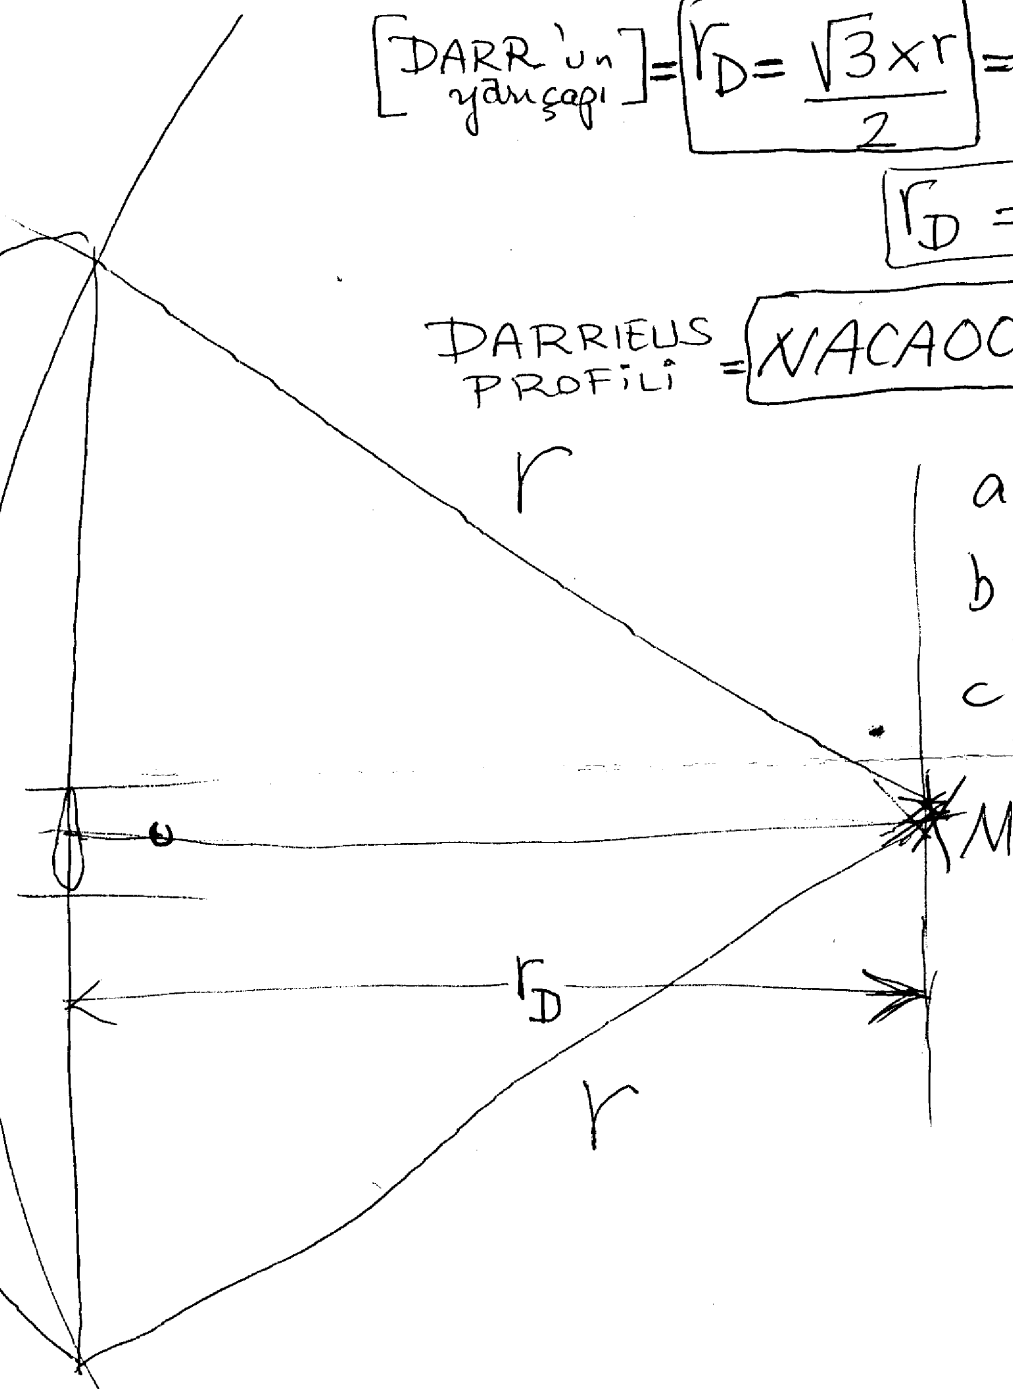 [DARR'ün yarıçapı] = rD = √3xr / 2 =
rD =
DARRIEUS PROFiLi = NACA00
r
a
b
c
M
rD
r